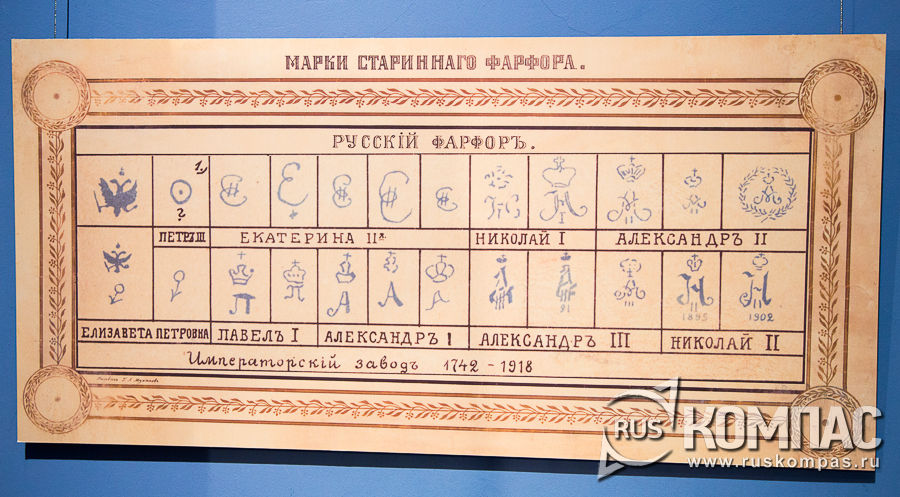 МАРКИ СТАРИННАГО ФАРФОРА.
РУССКІЙ ФАРФОРЪ.
1.
?
ПЕТРЪ III
ЕКАТЕРИНА IIя
НИКОЛАЙ I
АЛЕКСАНДРЪ II
П
П
А
А
А
91
1895
1902
ЕЛИЗАВЕТА ПЕТРОВНА
ПАВЕЛЪ I
АЛЕКСАНДРЪ I
АЛЕКСАНДРЪ III
НИКОЛАЙ II
Императорскій заводъ 1742 - 1918
RUS КОМПАС
www.ruskompas.ru